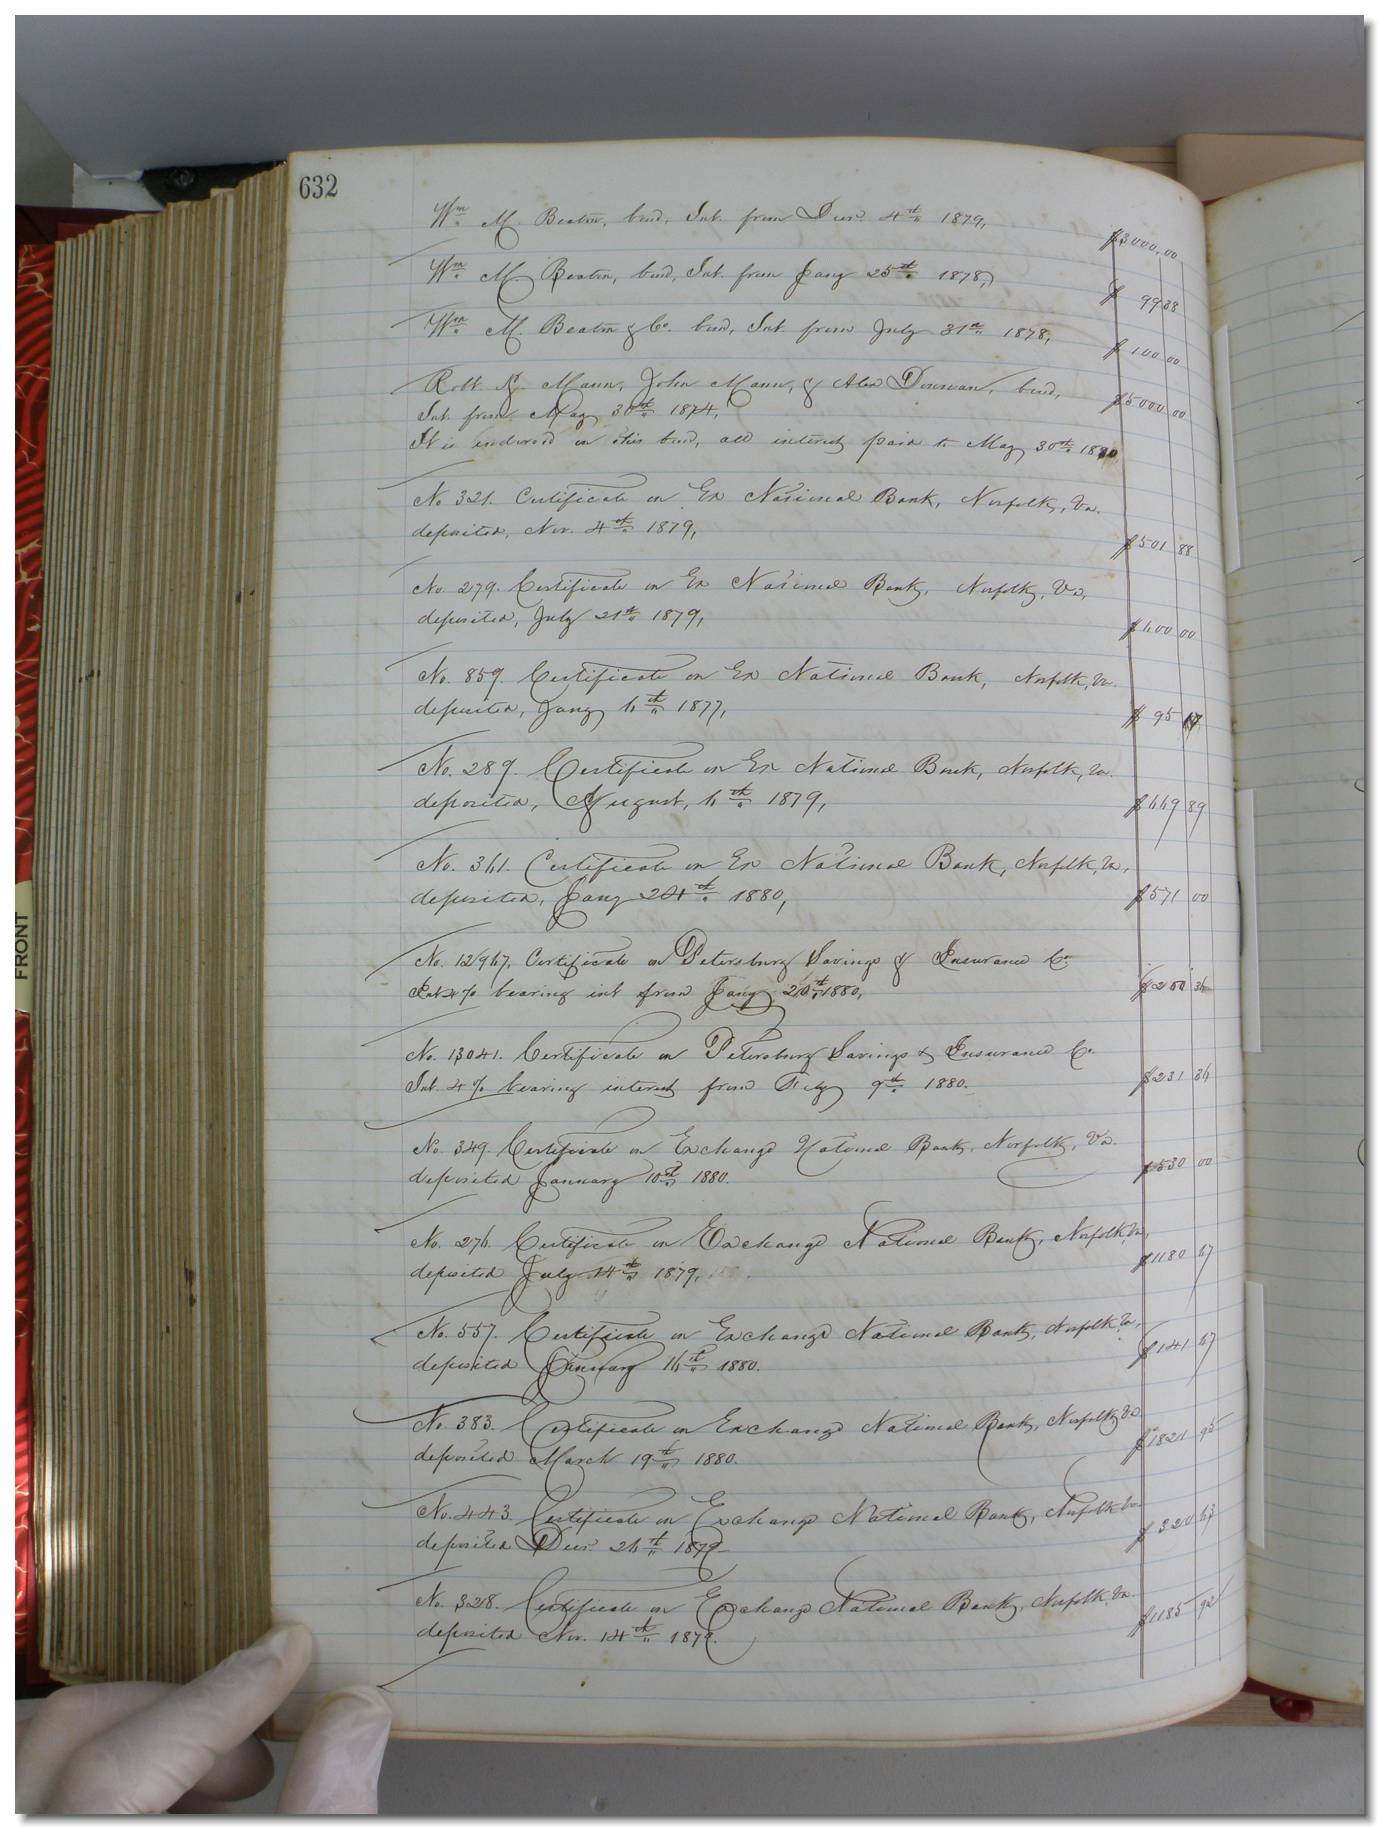 632
Wm. M. Beaton, bond, Int. from Decr. 4th 1879, $3000.00
Wm. M. Beaton, bond, Int. from Jany 25th 1878, $ 99 38
Wm. M. Beaton & Co. bond, Int. from July 31st 1878, $ 100 00
Robt. Mann, John Mann, & Alex Donnan, bond, $5000 00
Int. from May 30th 1874,
It is endorsed on this bond, all interest paid to May 30th 1880
No 321. Certificate on Ex National Bank, Norfolk, Va.
deposited, Nov. 4th 1879, $501 88
No. 279. Certificate on Ex National Bank, Norfolk, Va,
deposited, July 21st 1879, $600 00
No. 859. Certificate on Ex National Bank, Norfolk, Va.
deposited, Jany 6th 1877, $ 95
No. 289. Certificate on Ex National Bank, Norfolk, Va.
deposited, August, 6th 1879, $669 89
No. 361. Certificate on Ex National Bank, Norfolk, Va,
deposited, Jany 24th 1880, $571 00
No. 12967. Certificate on Petersburg Savings & Insurance Co.
Int 4% bearing int from Jany 1880, $200 36
No. 13041. Certificate on Petersburg Savings & Insurance Co.
Int. 4% bearing interest from Feby 9th 1880. $231 36
No. 349. Certificate on Exchange National Bank, Norfolk, Va.
deposited January 10th 1880. $530 00
No. 276. Certificate on Exchange National Bank, Norfolk, Va,
deposited July 14th 1879, $1180 67
No. 557. Certificate on Exchange National Bank, Norfolk, Va,
deposited January 16th 1880. $141 67
No. 383. Certificate on Exchange National Bank, Norfolk, Va
deposited March 19th 1880. $1821 95
No. 443. Certificate on Exchange National Bank, Norfolk Va
deposited Decr. 26th 1879 $ 320 63
No. 328. Certificate on Exchange National Bank, Norfolk, Va
deposited Nov. 14th 1879. $1185 92
FRONT